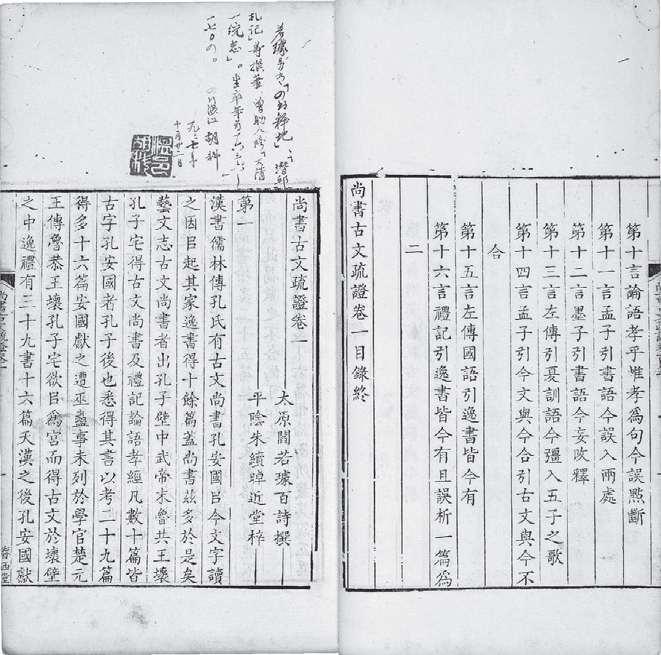 第十言論語孝乎惟孝為句今誤點斷
第十一言孟子引書語今誤入兩處
第十二言墨子引書語今妄改釋
第十三言左傳引夏訓語今彊入五子之歌
第十四言孟子引今文與今合引古文與今不
合
第十五言左傳國語引逸書皆今有
第十六言禮記引逸書皆今有且誤析一篇為
二
尚書古文疏證卷一目錄終
尚書古文疏證卷一
太原閻若璩百詩撰
第一 平陰朱續晫近堂梓
漢書儒林傳孔氏有古文尚書孔安國㠯今文字讀
之因㠯起其家逸書得十餘篇蓋尚書茲多於是矣
藝文志古文尚書者出孔子壁中武帝末魯共王壞
孔子宅得古文尚書及禮記論語孝經凡數十篇皆
古字孔安國者孔子後也悉得其書以考二十九篇
得多十六篇安國獻之遭巫蠱事未列於學官楚元
王傳魯恭王壞孔子宅欲㠯為宮而得古文於壞壁
之中逸禮有三十九書十六篇天漢之後孔安國獻
眷西堂